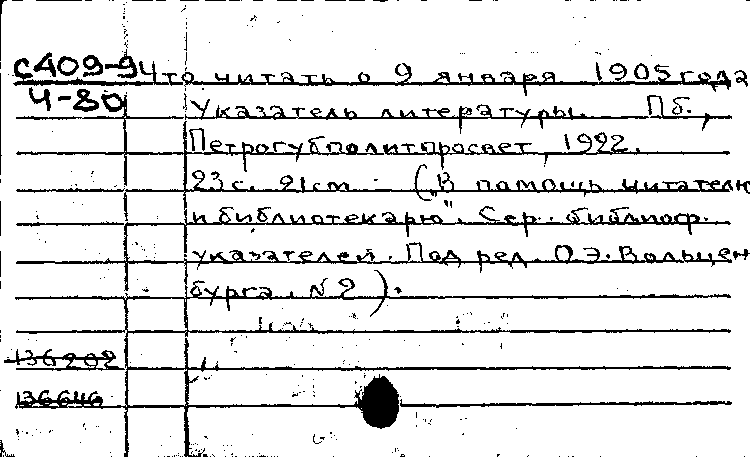 С409-9 Что читать о 9 января 1905 года
Ч-80
Указатель литературы. Пб.,
Петрогубполитпросвет, 1922.
23с. 21см - („В помощь читателю
и библиотекарю". Сер. библиогр.
указателей. Под ред. О.Э. Вольцен
бурга. №2).
136202
136646